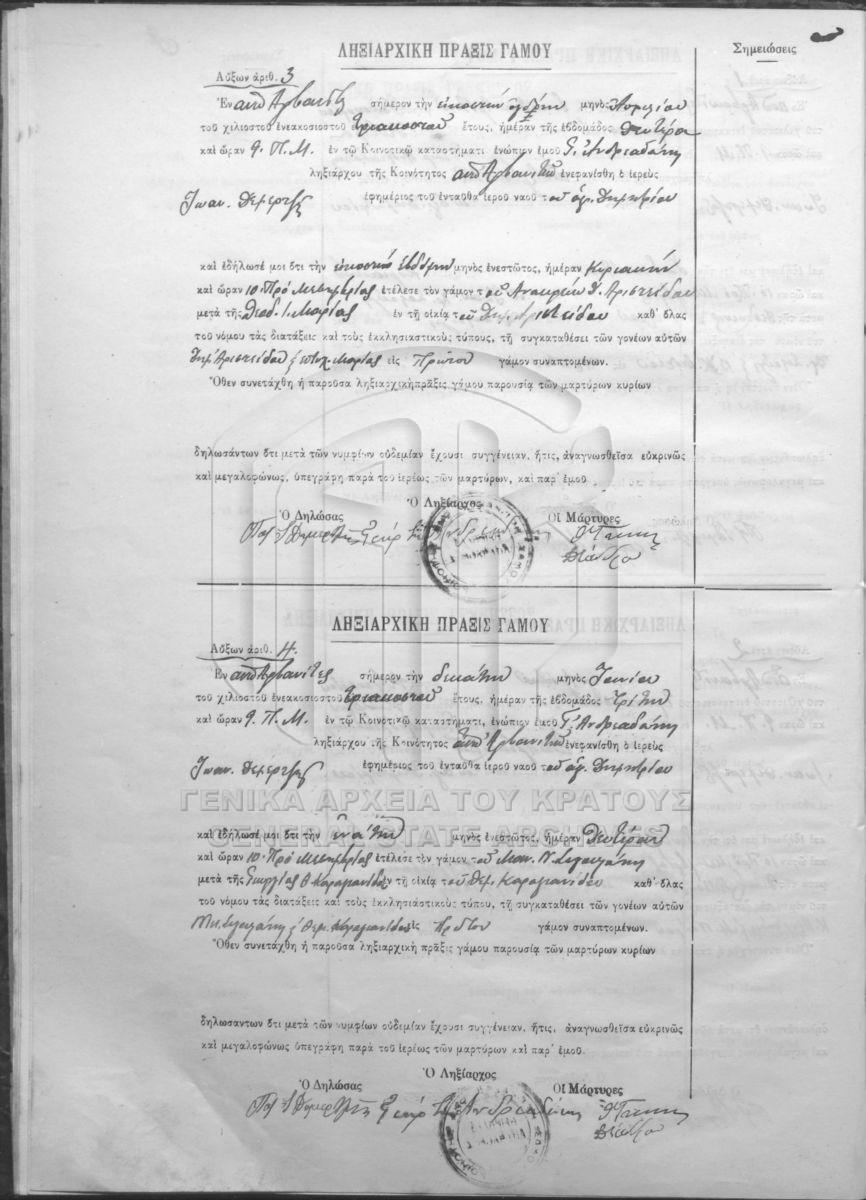 ΛΗΞΙΑΡΧΙΚΗ ΠΡΑΞΙΣ ΓΑΜΟΥ
Σημειώσεις
Αὔξων ἀριθ. 3
Ἐν σήμερον τὴν εἰκοστὴν ὀγδόην μηνὸς Ἀπριλίου
τοῦ χιλιοστοῦ ἐνεακοσιοστοῦ τριακοστοῦ ἔτους, ἡμέραν τῆς ἑβδομάδος Δευτέρα
καὶ ὥραν 9. Π. Μ. ἐν τῷ Κοινοτικῷ καταστήματι ἐνώπιον ἐμοῦ Γ. Ἀνδρεαδάκη
ληξιάρχου τῆς Κοινότητος ἐνεφανίσθη ὁ ἱερεὺς
Ἰωαν. Δεμερτζῆς ἐφημέριος τοῦ ἐνταῦθα ἱεροῦ ναοῦ τοῦ ἁγ. Δημητρίου
καὶ ἐδήλωσέ μοι ὅτι τὴν εἰκοστὴν ἑβδόμην μηνὸς ἐνεστῶτος, ἡμέραν Κυριακὴν
καὶ ὥραν 10. Πρὸ Μεσημβρίας ἐτέλεσε τὸν γάμον τοῦ Δ. Ἀριστείδου
μετὰ τῆς Θεοδ. Ι. Μαρίας ἐν τῇ οἰκίᾳ τοῦ Δημ. Ἀριστείδου καθ' ὅλας
τοῦ νόμου τὰς διατάξεις καὶ τοὺς ἐκκλησιαστικοὺς τύπους, τῇ συγκαταθέσει τῶν γονέων αὐτῶν
Δημ. Ἀριστείδου Μαρίας εἰς Πρῶτον γάμον συναπτομένων.
Ὅθεν συνετάχθη ἡ παροῦσα ληξιαρχικὴ πρᾶξις γάμου παρουσίᾳ τῶν μαρτύρων κυρίων
δηλωσάντων ὅτι μετὰ τῶν νυμφίων οὐδεμίαν ἔχουσι συγγένειαν, ἥτις, ἀναγνωσθεῖσα εὐκρινῶς
καὶ μεγαλοφώνως, ὑπεγράφη παρὰ τοῦ ἱερέως τῶν μαρτύρων, καὶ παρ' ἐμοῦ.
Ὁ Ληξίαρχος
Ὁ Δηλώσας Οἱ Μάρτυρες
ΛΗΞΙΑΡΧΙΚΗ ΠΡΑΞΙΣ ΓΑΜΟΥ
Αὔξων ἀριθ. 4.
Ἐν σήμερον τὴν δεκάτην μηνὸς Ἰουνίου
τοῦ χιλιοστοῦ ἐνεακοσιοστοῦ τριακοστοῦ ἔτους, ἡμέραν τῆς ἑβδομάδος Τρίτην
καὶ ὥραν 9. Π. Μ. ἐν τῷ Κοινοτικῷ καταστήματι, ἐνώπιον ἐμοῦ Γ. Ἀνδρεαδάκη
ληξιάρχου τῆς Κοινότητος ἐνεφανίσθη ὁ ἱερεὺς
Ἰωαν. Δεμερτζῆς ἐφημέριος τοῦ ἐνταῦθα ἱεροῦ ναοῦ τοῦ ἁγ. Δημητρίου
ΓΕΝΙΚΑ ΑΡΧΕΙΑ ΤΟΥ ΚΡΑΤΟΥΣ
GENERAL STATE ARCHIVES
καὶ ἐδήλωσέ μοι ὅτι τὴν ἐνάτην μηνὸς ἐνεστῶτος, ἡμέραν Δευτέραν
καὶ ὥραν 10. Πρὸ Μεσημβρίας ἐτέλεσε τὸν γάμον τοῦ Μαν. Ν.
μετὰ τῆς Γεωργίας Θ. Καραμανίδου ἐν τῇ οἰκίᾳ τοῦ Θεμ. Καραμανίδου καθ' ὅλας
τοῦ νόμου τὰς διατάξεις καὶ τοὺς ἐκκλησιαστικοὺς τύπου, τῇ συγκαταθέσει τῶν γονέων αὐτῶν
Θεμ. Καραμανίδου εἰς Πρῶτον γάμον συναπτομένων.
Ὅθεν συνετάχθη ἡ παροῦσα ληξιαρχικὴ πρᾶξις γάμου παρουσίᾳ τῶν μαρτύρων κυρίων
δηλωσαντων ὅτι μετὰ τῶν νυμφίων οὐδεμίαν ἔχουσι συγγένειαν, ἥτις, ἀναγνωσθεῖσα εὐκρινῶς
καὶ μεγαλοφώνως ὑπεγράφη παρὰ τοῦ ἱερέως τῶν μαρτύρων καὶ παρ' ἐμοῦ.
Ὁ Ληξίαρχος
Ὁ Δηλώσας Οἱ Μάρτυρες